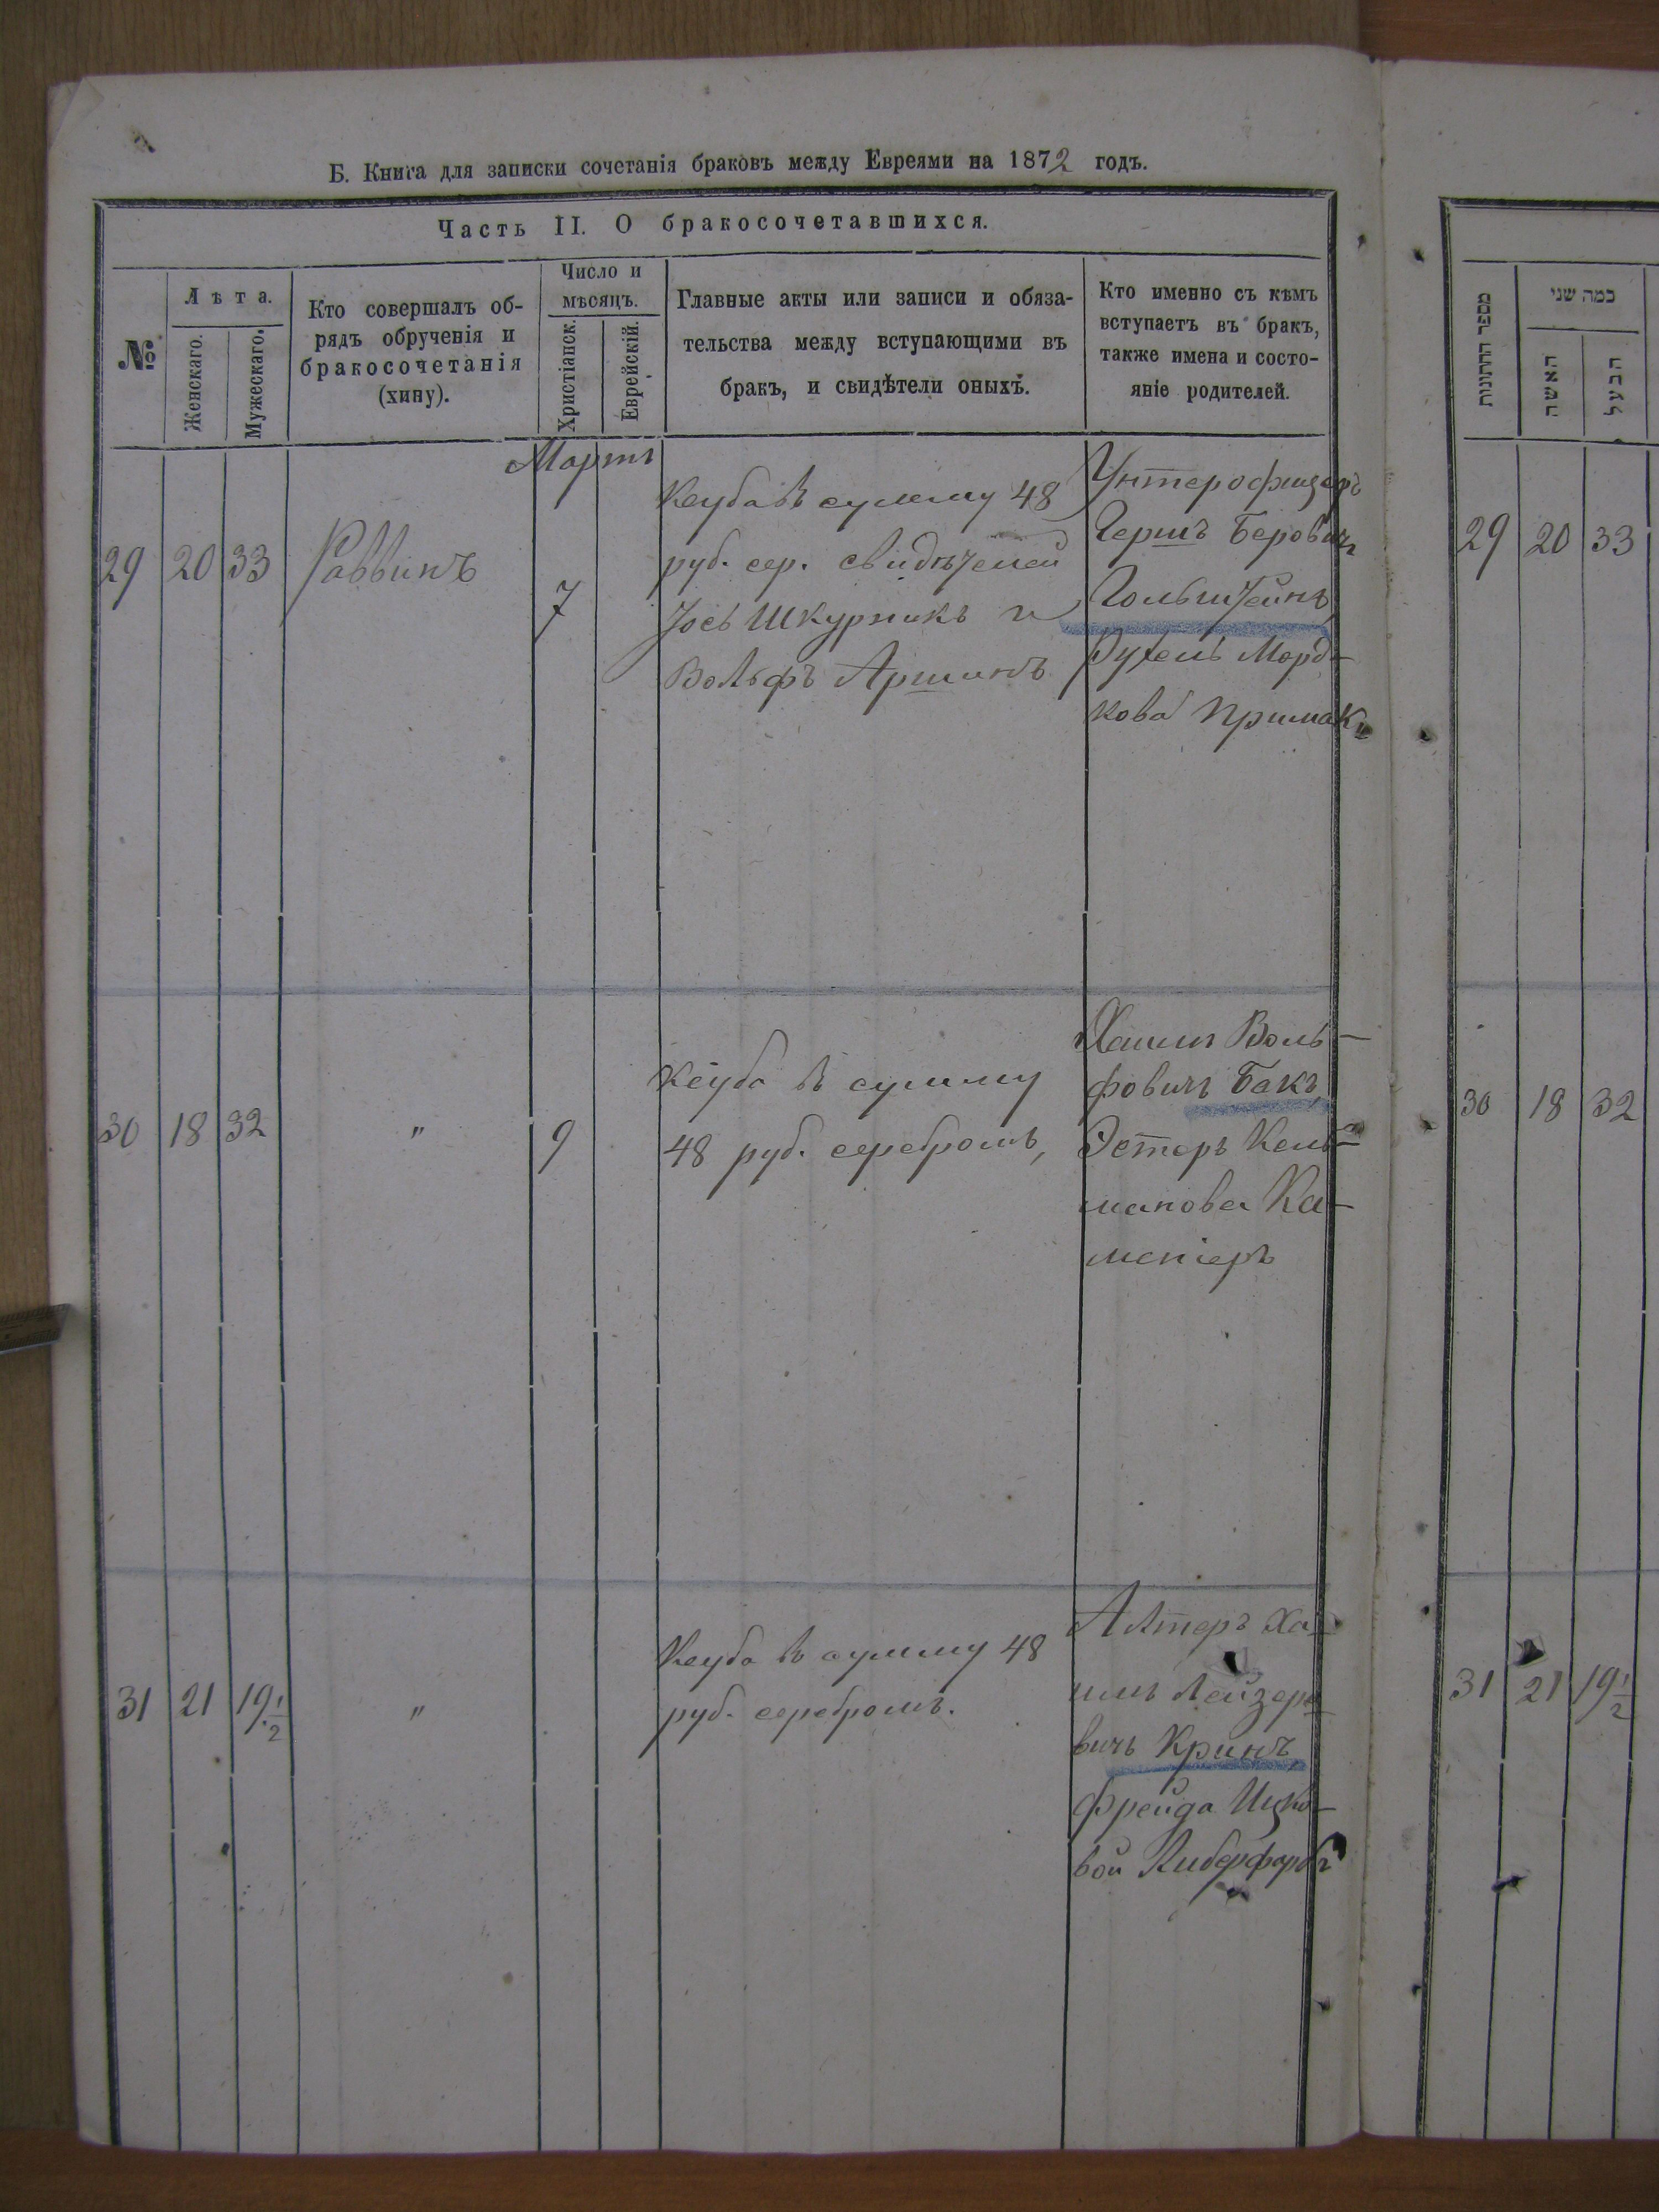 Б. Книга для записки сочетанія браковъ между Евреями на 1872 годъ.
Часть II. О бракосочетавшихся.
№
Лѣта.
Женскаго.
Мужескаго.
Кто совершалъ об-
рядъ обрученія и
бракосочетанія
(хипу).
Число и
мѣсяцъ.
Христіанск.
Еврейскій.
Главные акты или записи и обяза-
тельства между вступающими въ
бракъ, и свидѣтели оныхъ.
Кто именно съ кѣмъ
вступаетъ въ бракъ,
также имена и состо-
яніе родителей.
Мартъ
29 20 33 Раввинъ 7
Кеуба въ сумму 48
руб. сер. свидѣтелей
Іось Шкурникъ и
Вольфъ Аршинъ
Унтерофицеръ
Гершъ Беровичъ
Гольштейнъ,
Рухель Морд-
кова Примакъ
30 18 32 " 9
Кеуба въ сумму
48 руб. серебромъ,
Хаимъ Воль-
фовичъ Бакъ,
Эстеръ Кель-
манова Ка-
меніеръ
31 21 19 1/2 "
Кеуба въ сумму 48
руб. серебромъ.
Алтеръ Ха-
имъ Лейзеро
вичъ Кринъ,
Фрейда Ицко-
вой Либерфарбъ
מספר החתונות
כמה שני
האשה
הבעל
29 20 33
30 18 32
31 21 19 1/2